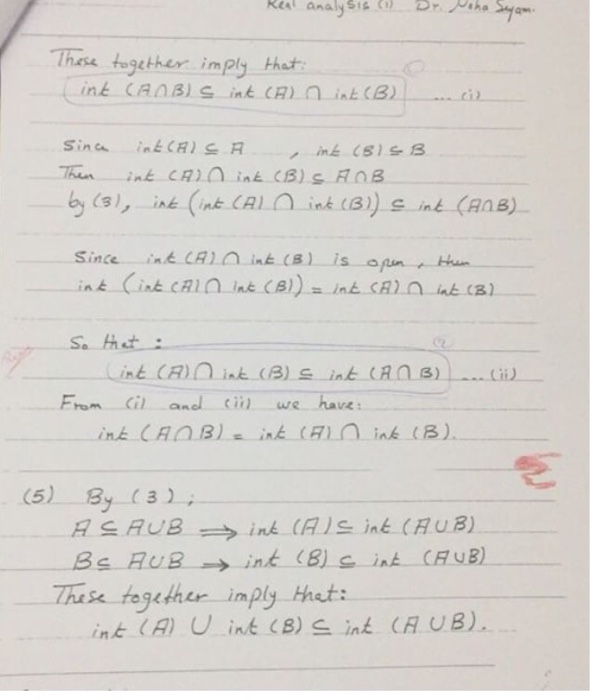 Real analysis (1) Dr. Syam.
These together imply that:
int (A∩B) ⊆ int (A) ∩ int (B) ... (i)
Since int (A) ⊆ A , int (B) ⊆ B
Then int (A) ∩ int (B) ⊆ A∩B
by (3), int (int (A) ∩ int (B)) ⊆ int (A∩B)
Since int (A) ∩ int (B) is open, then
int (int (A) ∩ int (B)) = int (A) ∩ int (B)
So that :
(2)
int (A) ∩ int (B) ⊆ int (A∩B) ... (ii)
From (i) and (ii) we have:
int (A∩B) = int (A) ∩ int (B).
(5) By (3);
A ⊆ A∪B ⟹ int (A) ⊆ int (A∪B)
B ⊆ A∪B → int (B) ⊆ int (A∪B)
These together imply that:
int (A) ∪ int (B) ⊆ int (A∪B).